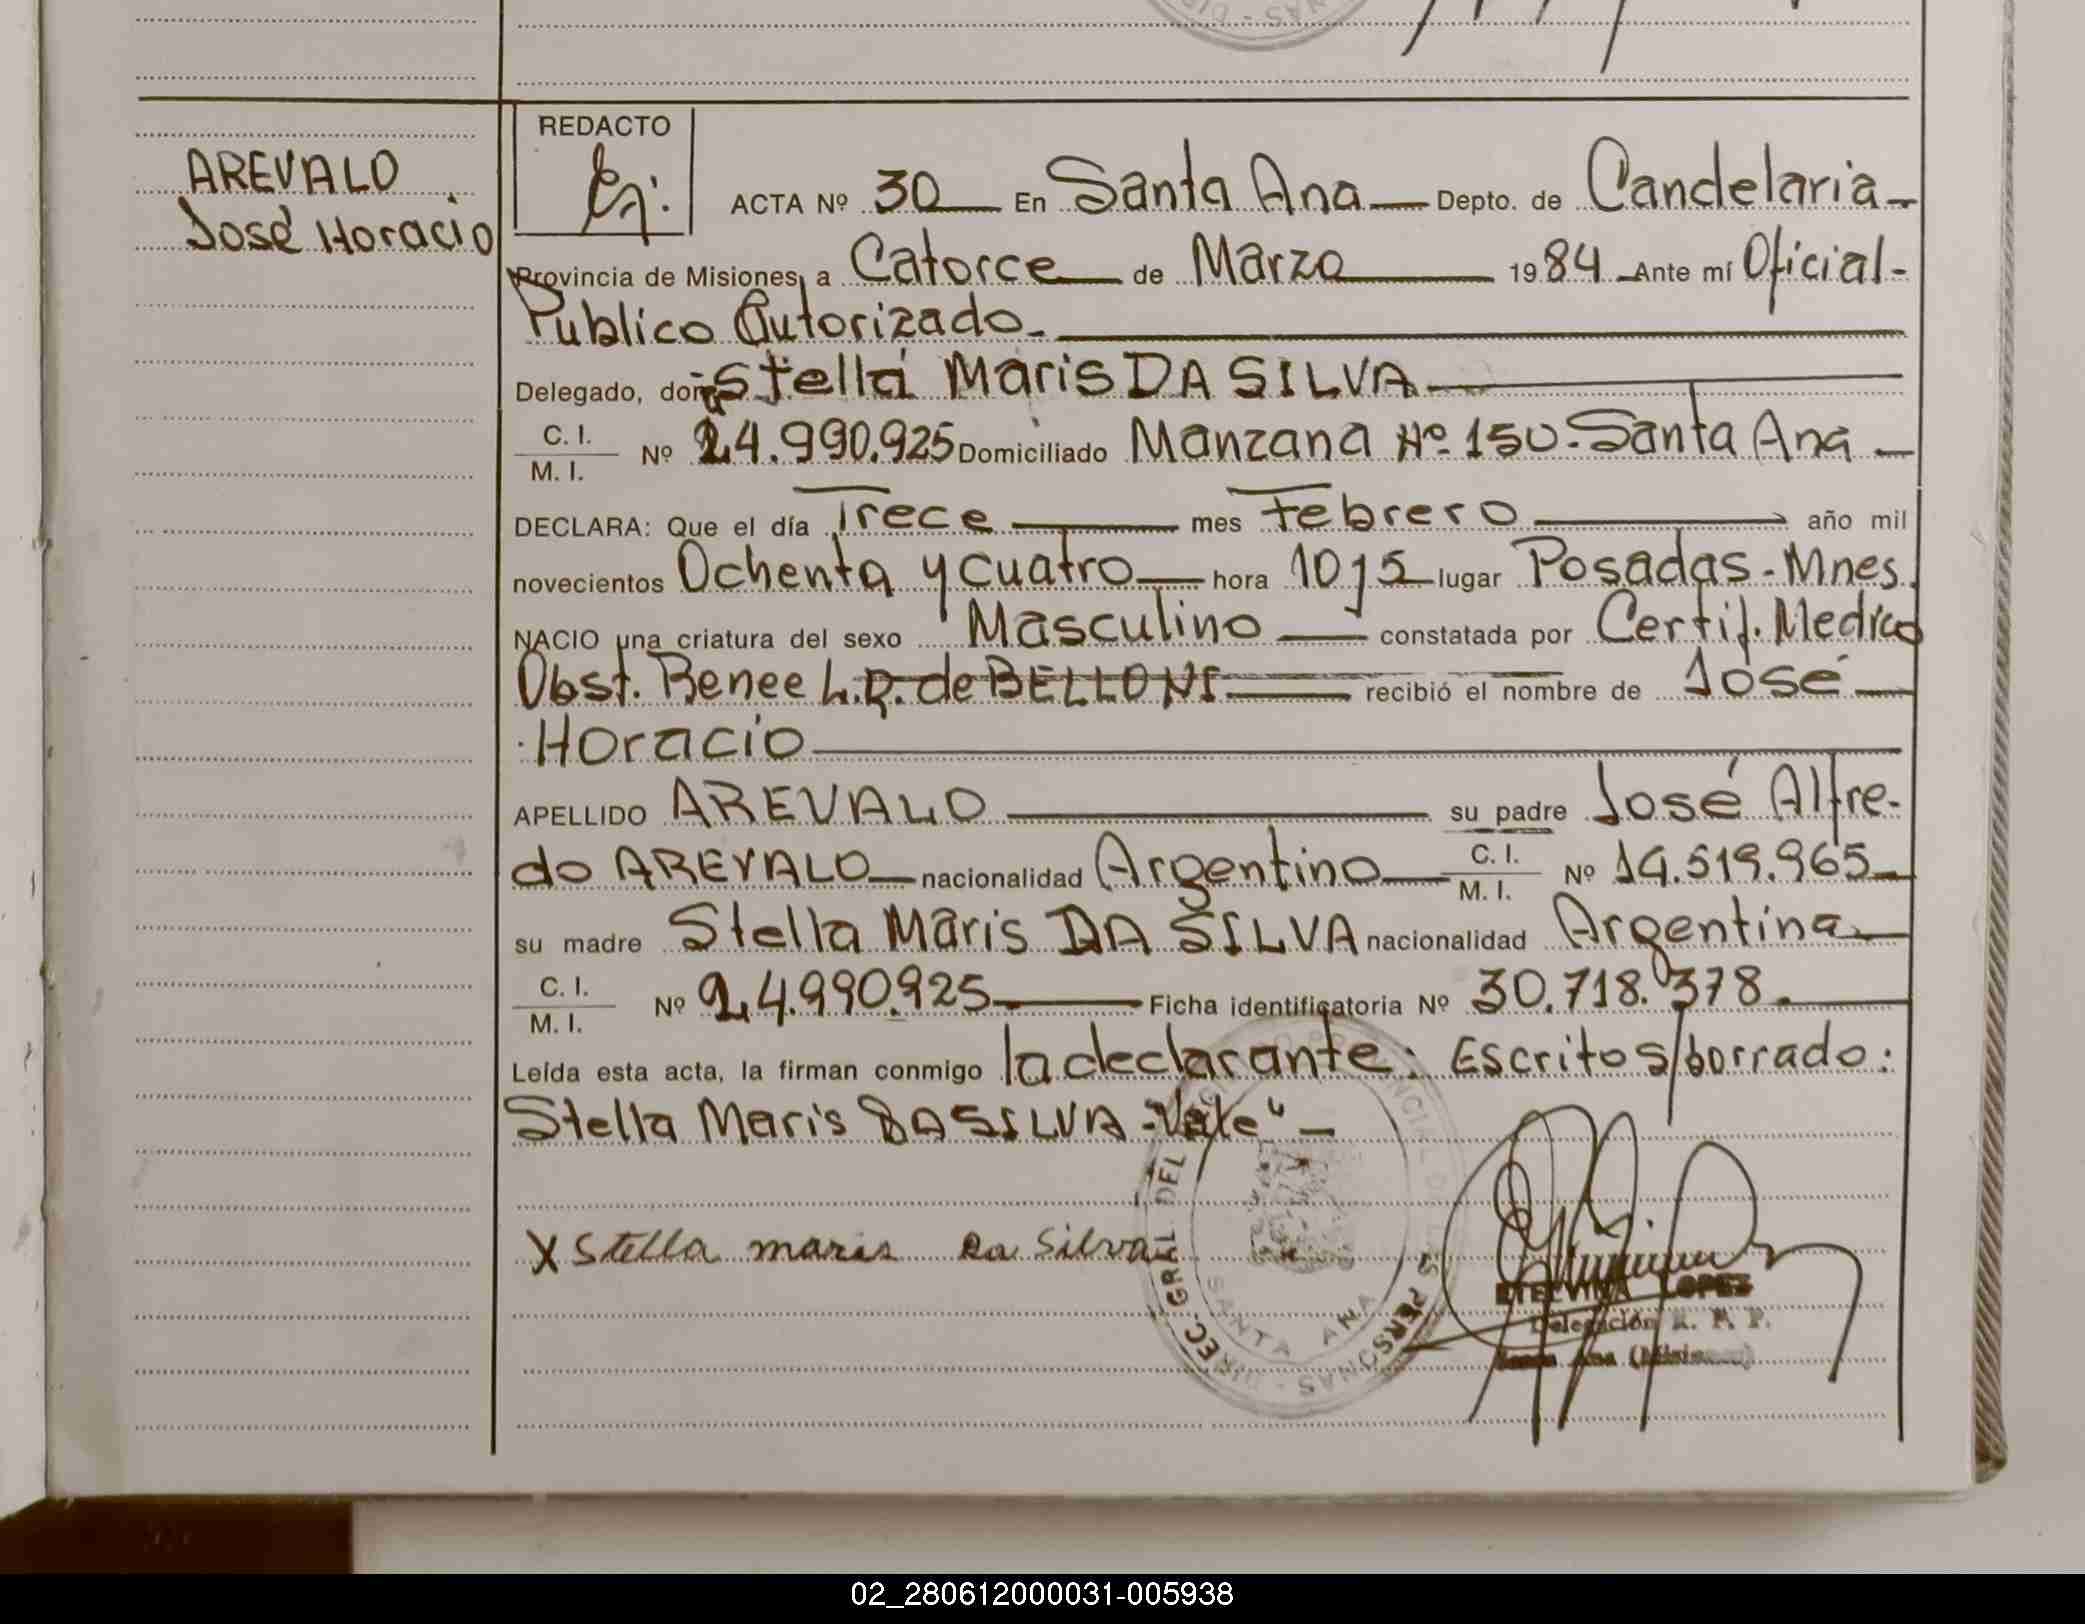 NAS - DIR
REDACTO
AREVALO
José Horacio
ACTA Nº 30 En Santa Ana Depto. de Candelaria
Provincia de Misiones, a Catorce de Marzo 1984 Ante mí Oficial-
Publico Autorizado.
Delegado, doña Stella Maris DA SILVA
C. I.
M. I. Nº 24.990.925 Domiciliado Manzana Nº 150. Santa Ana
DECLARA: Que el día Trece mes Febrero año mil
novecientos Ochenta y cuatro hora 10,15 lugar Posadas - Mnes.
NACIO una criatura del sexo Masculino constatada por Certif. Medico
Obst. Renee L.R. de BELLONI recibió el nombre de José
Horacio
APELLIDO AREVALO su padre José Alfre-
do AREVALO nacionalidad Argentino C. I. M. I. Nº 14.519.965
su madre Stella Maris DA SILVA nacionalidad Argentina
C. I.
M. I. Nº 24.990.925 Ficha identificatoria Nº 30.718.378.
Leída esta acta, la firman conmigo la declarante: Escrito s/borrado:
Stella Maris DA SILVA - "Vale" -
X Stella maris Da Silva
DIREC. GRAL. DEL PROVINCIAL DE LAS PERSONAS
SANTA ANA
ETELVINA LOPEZ
Delegación R. P. P.
Santa Ana (Misiones)
02_280612000031-005938